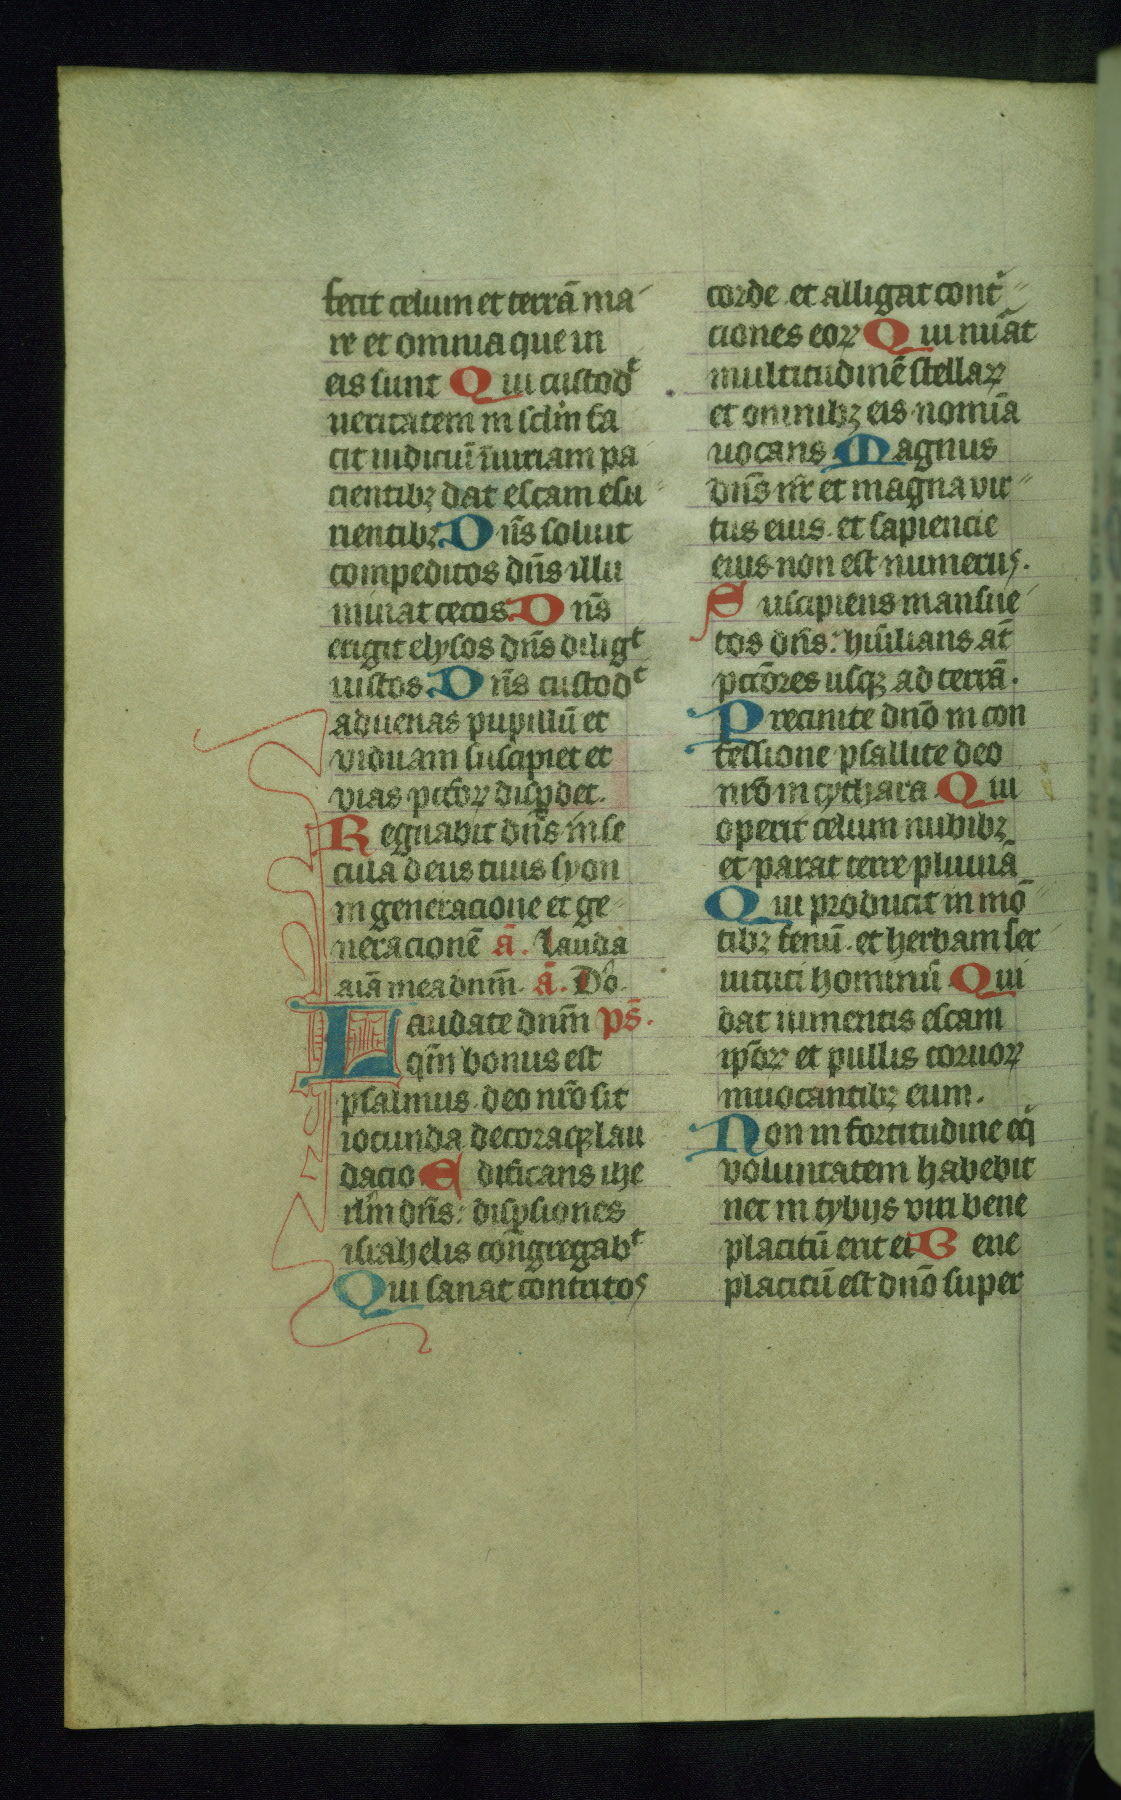 fecit celum et terrā ma
re et omnia que in
eis sunt Qui custodᵗ
ueritatem in sclm̄ fa
cit iudiciū iniuriam pa
cientibꝫ dat escam esu
rientibꝫ Dn̄s soluit
compeditos dn̄s illu
minat cecos. Dn̄s
erigit elysos dn̄s diligᵗ
iustos. Dn̄s custodᵗ
aduenas pupillū et
viduam suscipiet et
vias pctōꝝ disꝑdet.
Regnabit dn̄s in se
cula deus tuus syon
in generacione et ge
neracionē ā. Lauda
aiā mea dnm̄. ā. Dō.
Laudate dnm̄ ps̄.
qm̄ bonus est
psalmus. deo nr̄o sit
iocunda decoraqꝫ lau
dacio Edificans ihe
rlm̄ dn̄s: disꝑsiones
israhelis congregabᵗ
Qui sanat contritos
corde. et alligat contⁱ
ciones eoꝝ Qui nūat
multitudinē stellaꝝ
et omnibꝫ eis nomīa
uocans Magnus
dn̄s nr̄ et magna vir
tus eius. et sapiencie
eius non est numerus.
Suscipiens mansue
tos dn̄s: hūilians at̄
pctōres usqꝫ ad terrā.
Precinite dnō in con
fessione psallite deo
nrō in cythara Qui
operit celum nubibꝫ
et parat terre pluuiā
Qui producit in mō
tibꝫ fenū. et herbam ser
uituti hominū Qui
dat iumentis escam
ip̄oꝝ et pullis coruoꝝ
inuocantibꝫ eum.
Non in fortitudine eqⁱ
voluntatem habebit
nec in tybijs viri bene
placitū erit ei Bene
placitū est dnō super